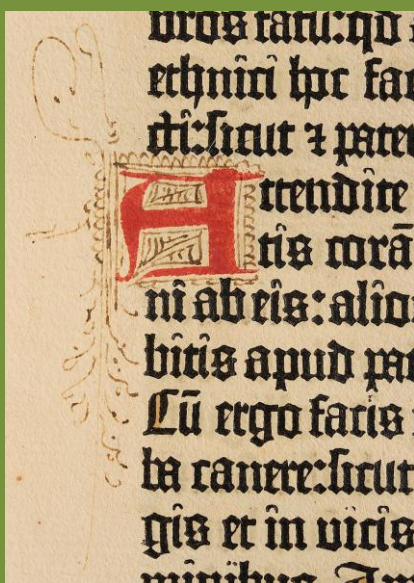 bros tātū: qd
ethnici hoc fac
cti: sicut ⁊ pater
Attendite
tis corā
ni ab eis: alio
bitis apud pat
Cū ergo facis
ba canere: sicut
gis et in vicis